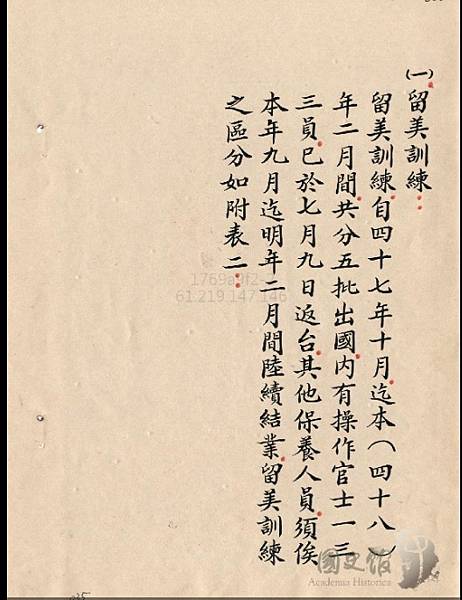 ㈠留美訓練：
留美訓練自四十七年十月迄本（四十八）
年二月間共分五批出國內有操作官士一三
三員已於七月九日返台其他保養人員須俟
本年九月迄明年二月間陸續結業留美訓練
之區分如附表二：
1769a9f2-
61.219.147.146
國史館
Academia Historica